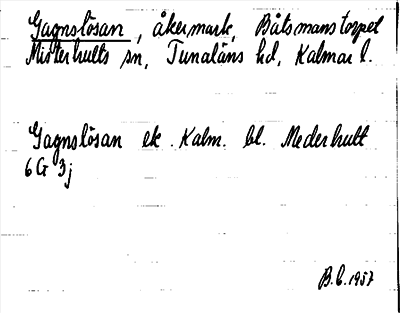 Gagnslösan, åkermark, Båtsmanstorpet
Misterhults sn, Tunaläns hd, Kalmar l.
Gagnslösan ek. Kalm. bl. Mederhult
6G 3j
B.C. 1957